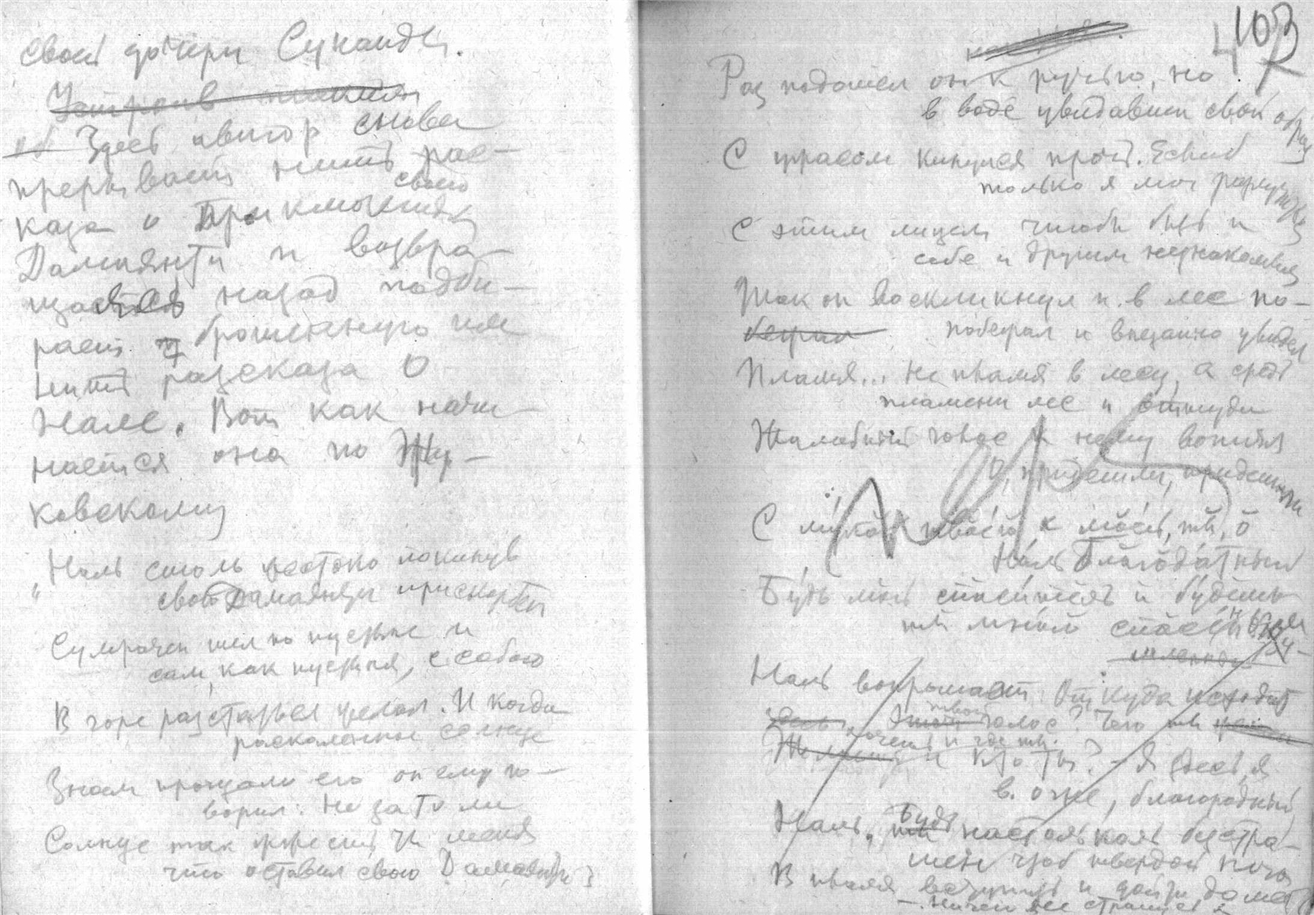 своей дочери Сунанды.
Здесь автор снова
прерывает нить рас-
каза о своего
Дамаянти и возвра-
щается назад подби-
рает брошенную им
нить разсказа о
Нале. Вот как начи-
нается она по Жу-
ковскому
"Наль столь жестоко покинув
свою Дамаянти прискорбен
Сумрачен шел по пустыне и
сам, как пустыня, с собою
В горе разстаться желал. И когда
раскаленное солнце
Зноем пронзало его он ему го-
ворил: Не за то ли
Солнце так жжешь ты меня
что оставил свою Дамаянти?
103
Раз подошел он к ручью, но
в воде увидавши свой образ
С ужасом кинулся прочь. Если б
только я мог разлучиться
С этим лицем чтоб быть и
себе и другим незнакомым
Так он воскликнул и в лес по-
побежал и внезапно увидел
Пламя... не пламя в лесу, а средь
пламени лес и оттуда
Жалобный голос к нему вопиял
О, придешь ли, придешь ли
С мукой твоей к моей, ты, о
Наль благодатный
Будь мой спаситель и будешь
ты мною спасен
Наль вопрошает: Откуда исходит
твой голос? Чего ты
хочешь и где ты
и кто ты? - Я здесь, я
в огне, благородный
Наль, Будь настолько бесстра-
шен чтоб твердой ногою
В пламя вступить и дойти до меня
- Ничего не страшусь я